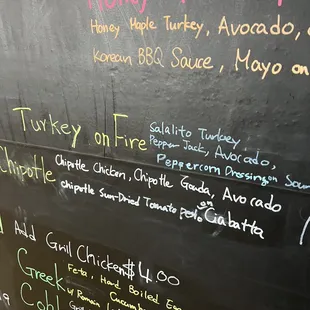 Honey Maple Turkey, Avocado,
Korean BBQ Sauce, Mayo on
Turkey on Fire Salalito Turkey,
Pepper Jack, Avocado,
Peppercorn Dressing on Sour
Chipotle Chipotle Chicken, Chipotle Gouda, Avocado
chipotle Sun-Dried Tomato Pesto on Ciabatta
Add Grill Chicken $4.00
Greek Feta, Hard Boiled
w/ Romain
Cucumb